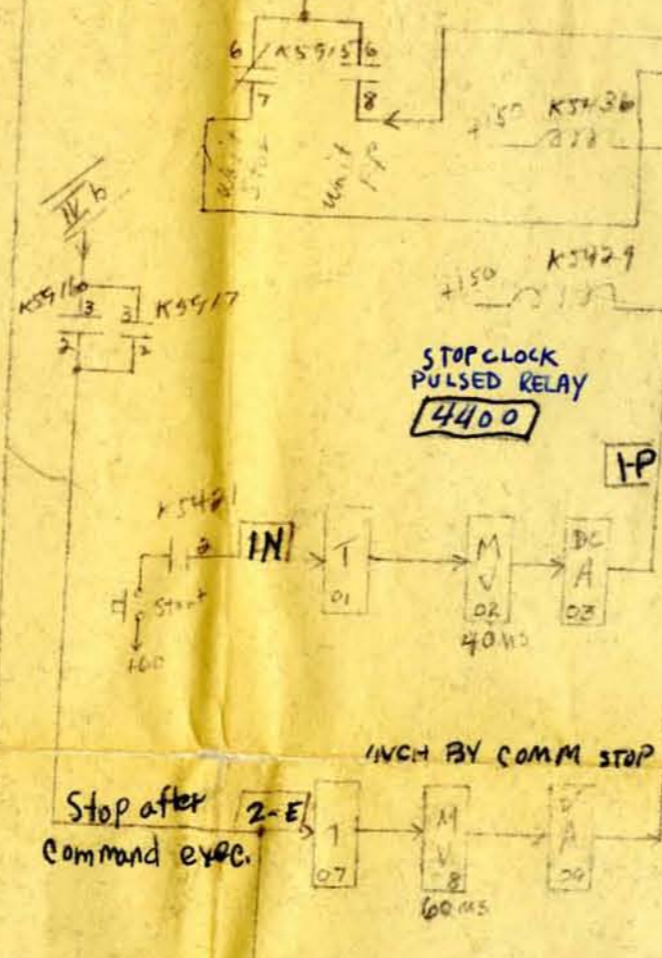 6 K5915 6
7 8
Unit
Stor
Unit
+150 K5436
IV b
K5916 3 3 K5917
2 2
K5429
+150
STOP CLOCK
PULSED RELAY
4400
1-P
K5421
2
1N
T
01
M
V
02
40 MS
DC
A
03
Start
+60
INCH BY COMM STOP
Stop after
Command exec.
2-E
1
07
M
V
8
60 MS
A
09